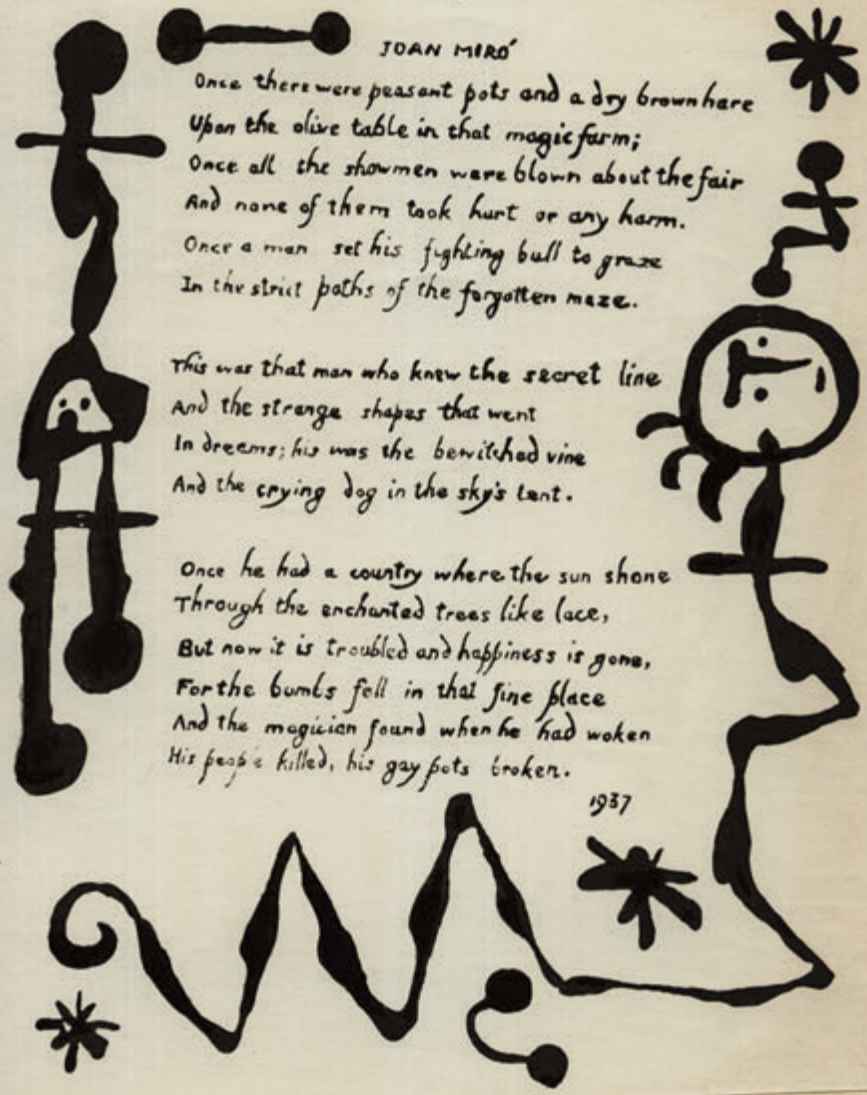 JOAN MIRÓ
Once there were peasant pots and a dry brown hare
Upon the olive table in that magic farm;
Once all the showmen were blown about the fair
And none of them took hurt or any harm.
Once a man set his fighting bull to graze
In the strict paths of the forgotten maze.
This was that man who knew the secret line
And the strange shapes that went
In dreams; his was the bewitched vine
And the crying dog in the sky's tent.
Once he had a country where the sun shone
Through the enchanted trees like lace,
But now it is troubled and happiness is gone,
For the bombs fell in that fine place
And the magician found when he had woken
His people killed, his gay pots broken.
1937